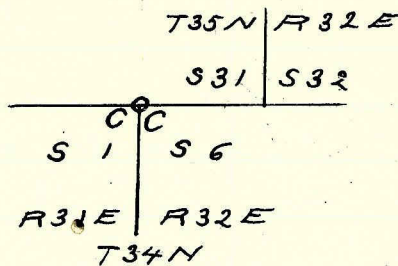 T35N R32E
S31 S32
C C
S 1 S 6
R31E R32E
T34N